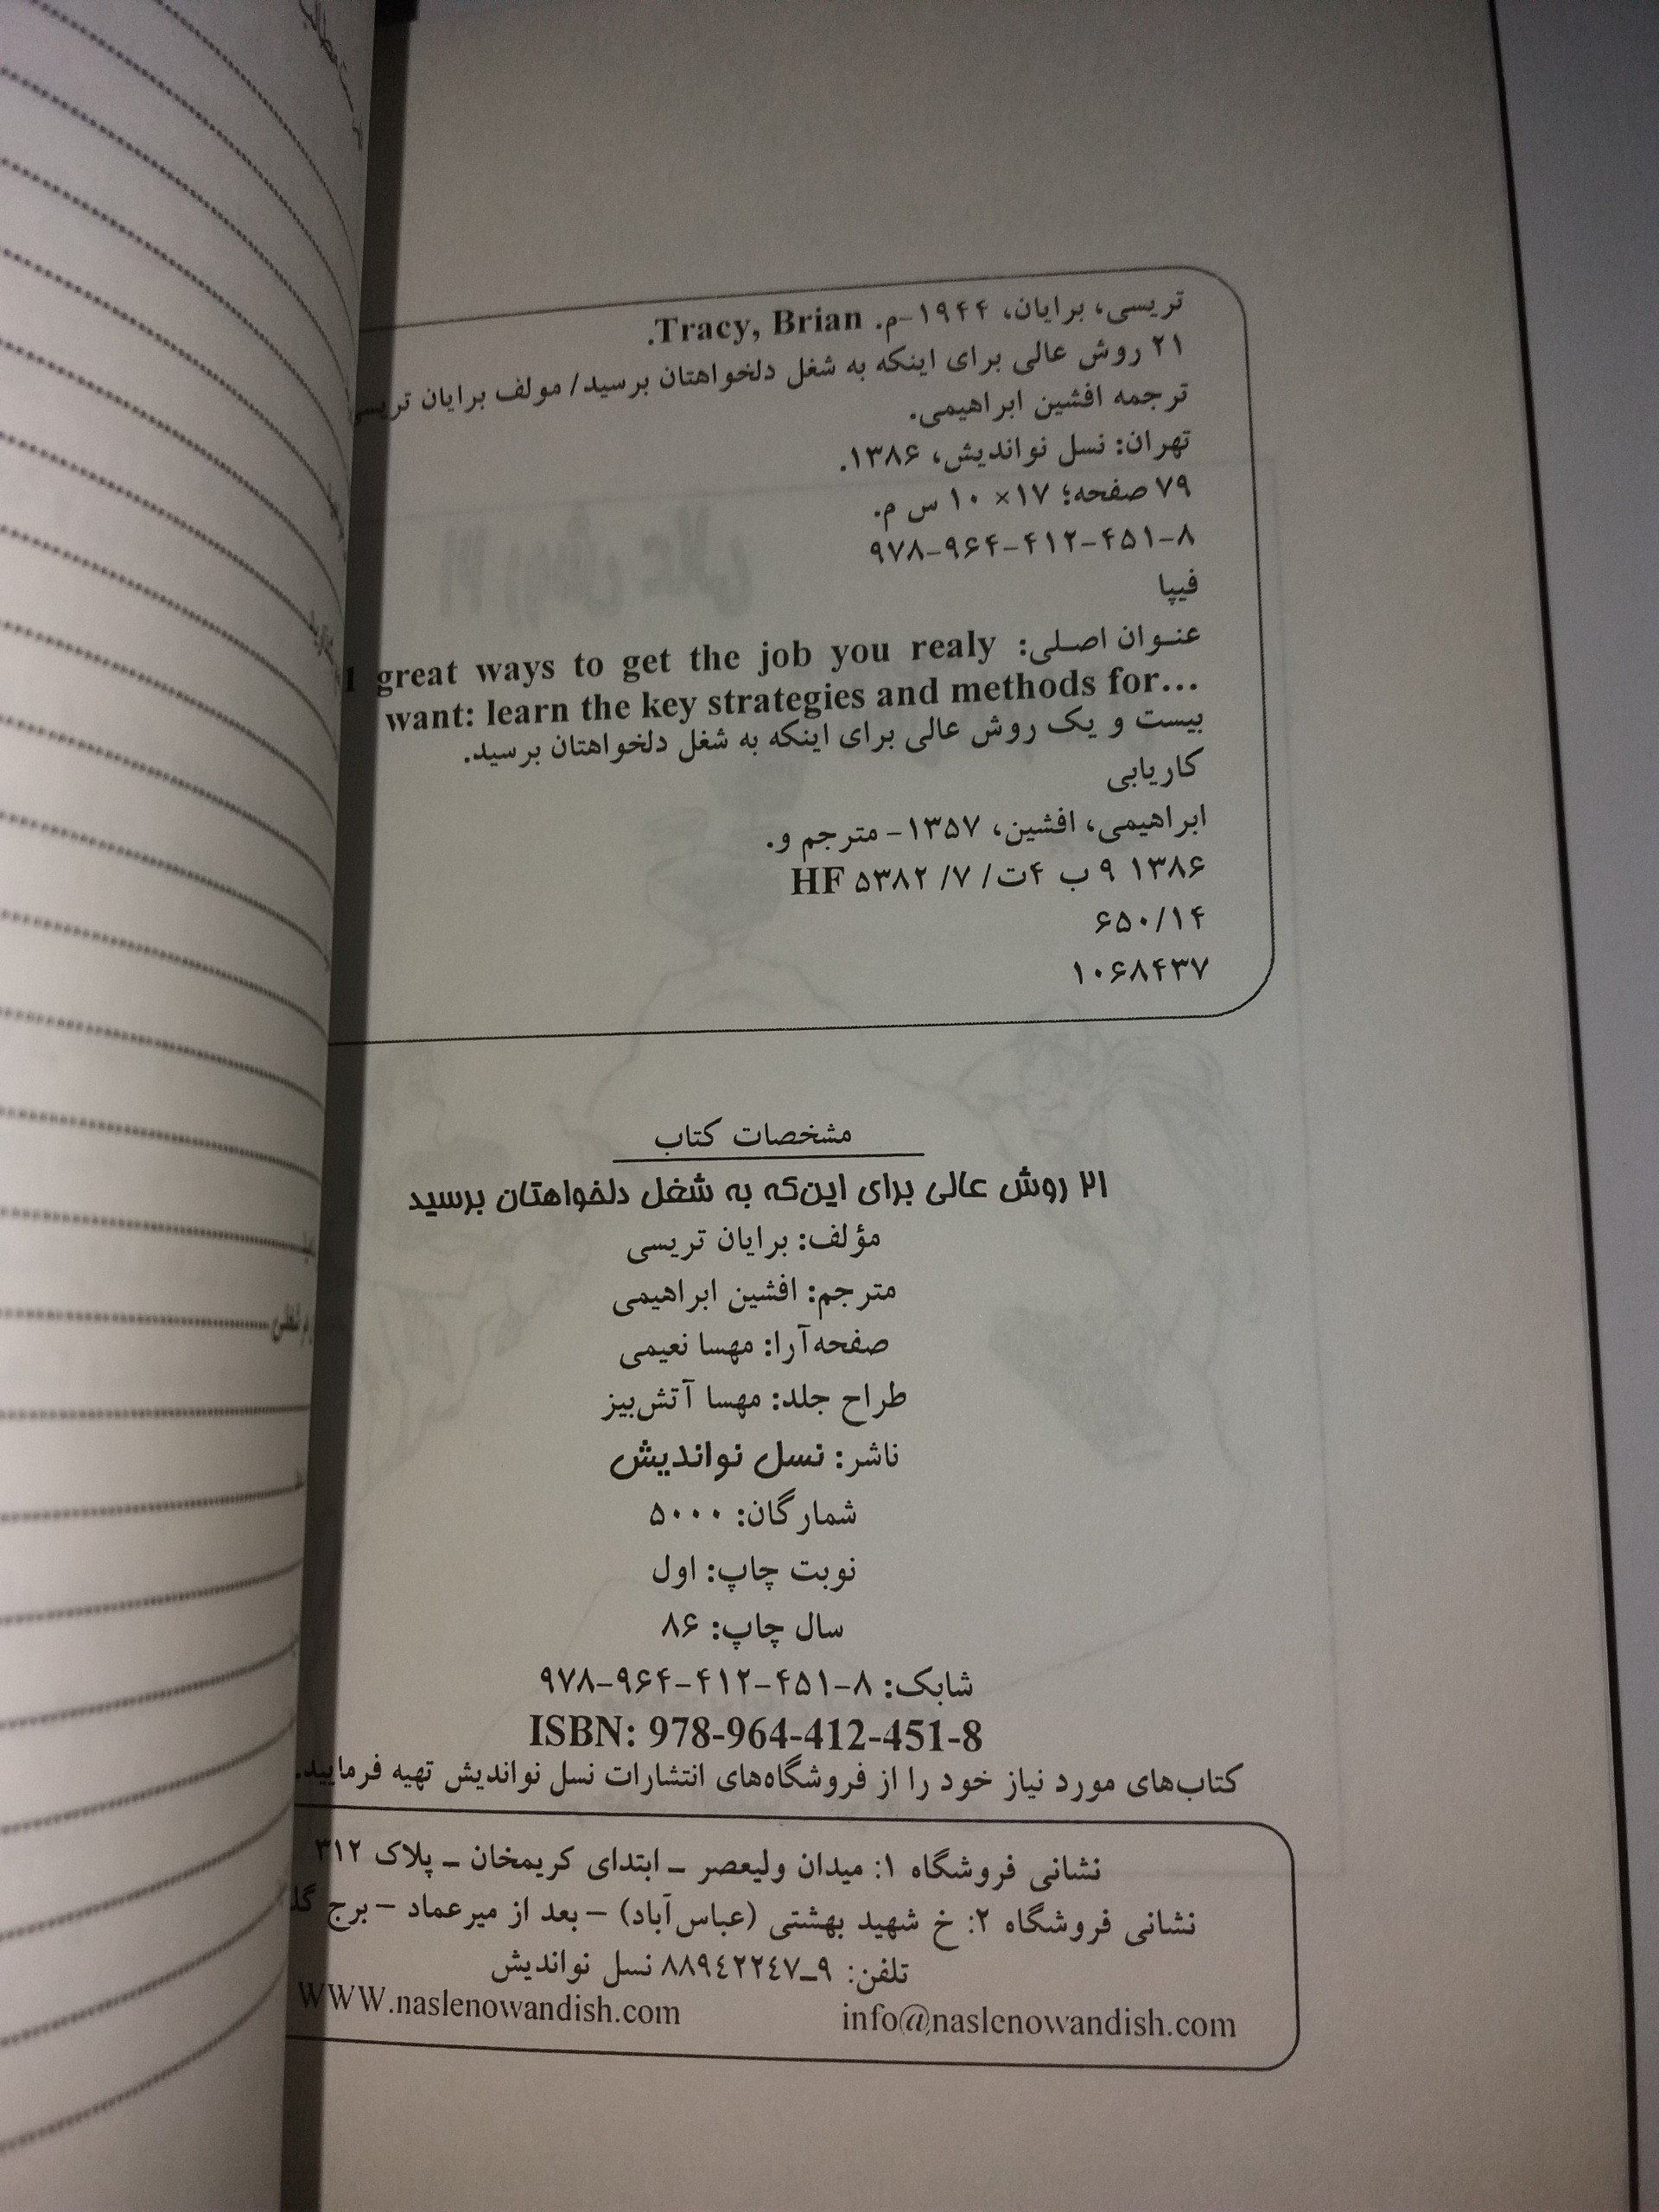 تریسی، برایان، ۱۹۴۴-م. Tracy, Brian.
۲۱ روش عالی برای اینکه به شغل دلخواهتان برسید/ مولف برایان تریسی
ترجمه افشین ابراهیمی.
تهران: نسل نواندیش، ۱۳۸۶.
۷۹ صفحه؛ ۱۷× ۱۰ س م.
۹۷۸-۹۶۴-۴۱۲-۴۵۱-۸
فیپا
عنوان اصلی: great ways to get the job you realy
want: learn the key strategies and methods for...
بیست و یک روش عالی برای اینکه به شغل دلخواهتان برسید.
کاریابی
ابراهیمی، افشین، ۱۳۵۷- مترجم و.
۱۳۸۶ ۹ ب ۴ت/ ۷/ HF ۵۳۸۲
۶۵۰/۱۴
۱۰۶۸۴۳۷
مشخصات کتاب
۲۱ روش عالی برای این‌که به شغل دلخواهتان برسید
مؤلف: برایان تریسی
مترجم: افشین ابراهیمی
صفحه‌آرا: مهسا نعیمی
طراح جلد: مهسا آتش‌بیز
ناشر: نسل نواندیش
شمارگان: ۵۰۰۰
نوبت چاپ: اول
سال چاپ: ۸۶
شابک: ۸-۴۵۱-۴۱۲-۹۶۴-۹۷۸
ISBN: 978-964-412-451-8
کتاب‌های مورد نیاز خود را از فروشگاه‌های انتشارات نسل نواندیش تهیه فرمایید.
نشانی فروشگاه ۱: میدان ولیعصر ـ ابتدای کریمخان ـ پلاک ۳۱۲
نشانی فروشگاه ۲: خ شهید بهشتی (عباس‌آباد) – بعد از میرعماد – برج
تلفن: ۹ـ۸۸۹٤۲۲٤۷ نسل نواندیش
WWW.naslenowandish.com info@naslenowandish.com